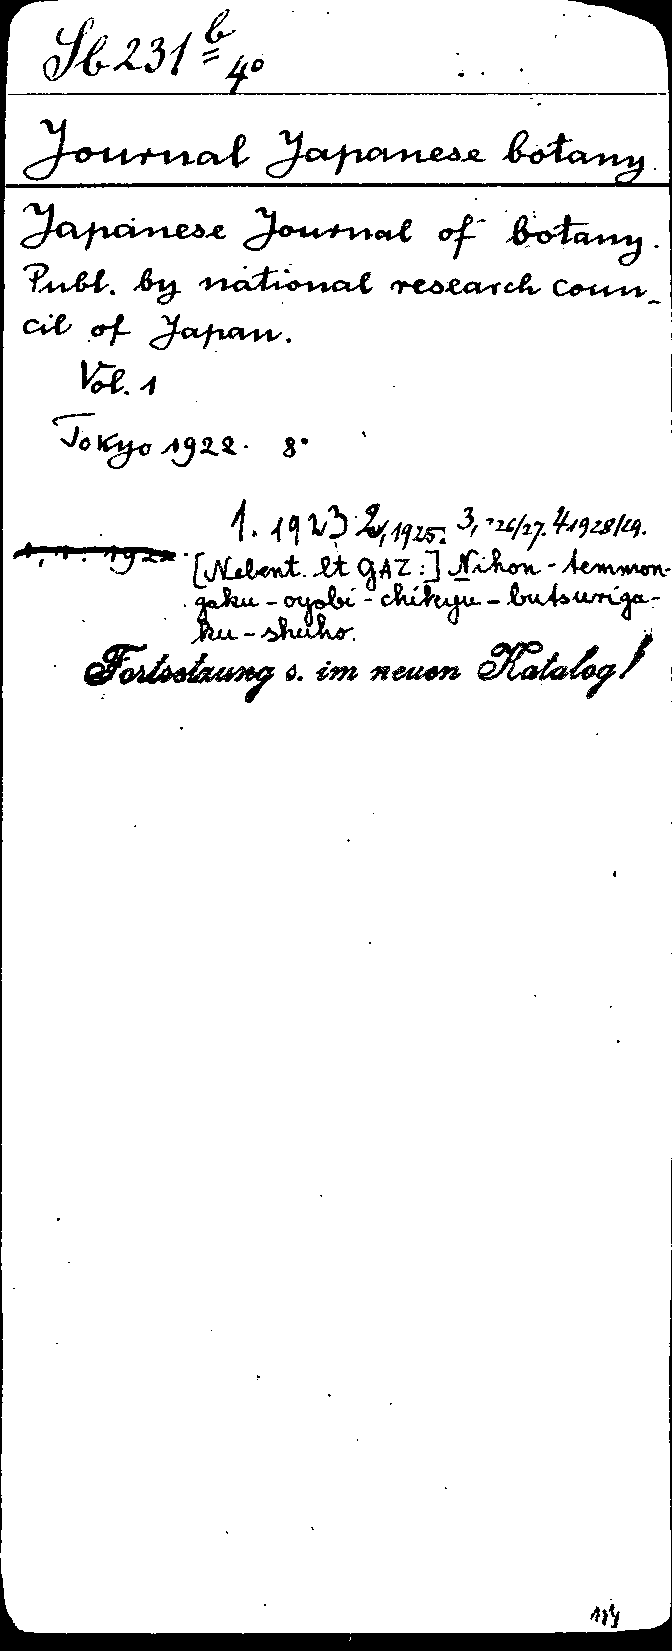 Sb 231 b 4°
Journal Japanese botany.
Japanese Journal of botany.
Publ. by national research coun-
cil of Japan.
Vol. 1
Tokyo 1922. 8°
1. 1923 2, 1925. 3, '26/27. 4 1928/29.
1, 1. 1922
[Nebent. lt GAZ:] Nihon - temmon-
gaku - oyobi - chikyu - butsuriga-
ku - shuho.
Fortsetzung s. im neuen Katalog!